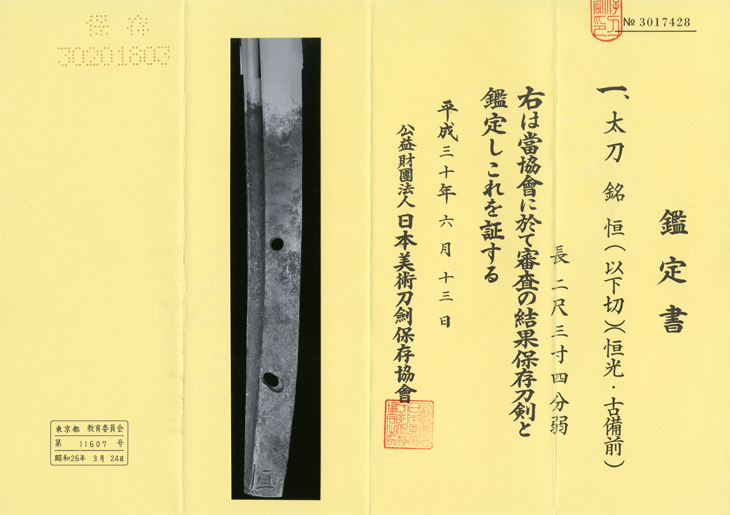 № 3017428
鑑定書
一、太刀 銘 恒(以下切)(恒光・古備前)
長 二尺三寸四分弱
右は當協會に於て審査の結果保存刀剣と
鑑定しこれを証する
平成三十年六月十三日
公益財團法人 日本美術刀劍保存協會
恒
保存
30201803
東京都 教育委員会
第 11607 号
昭和26年 3月 24日